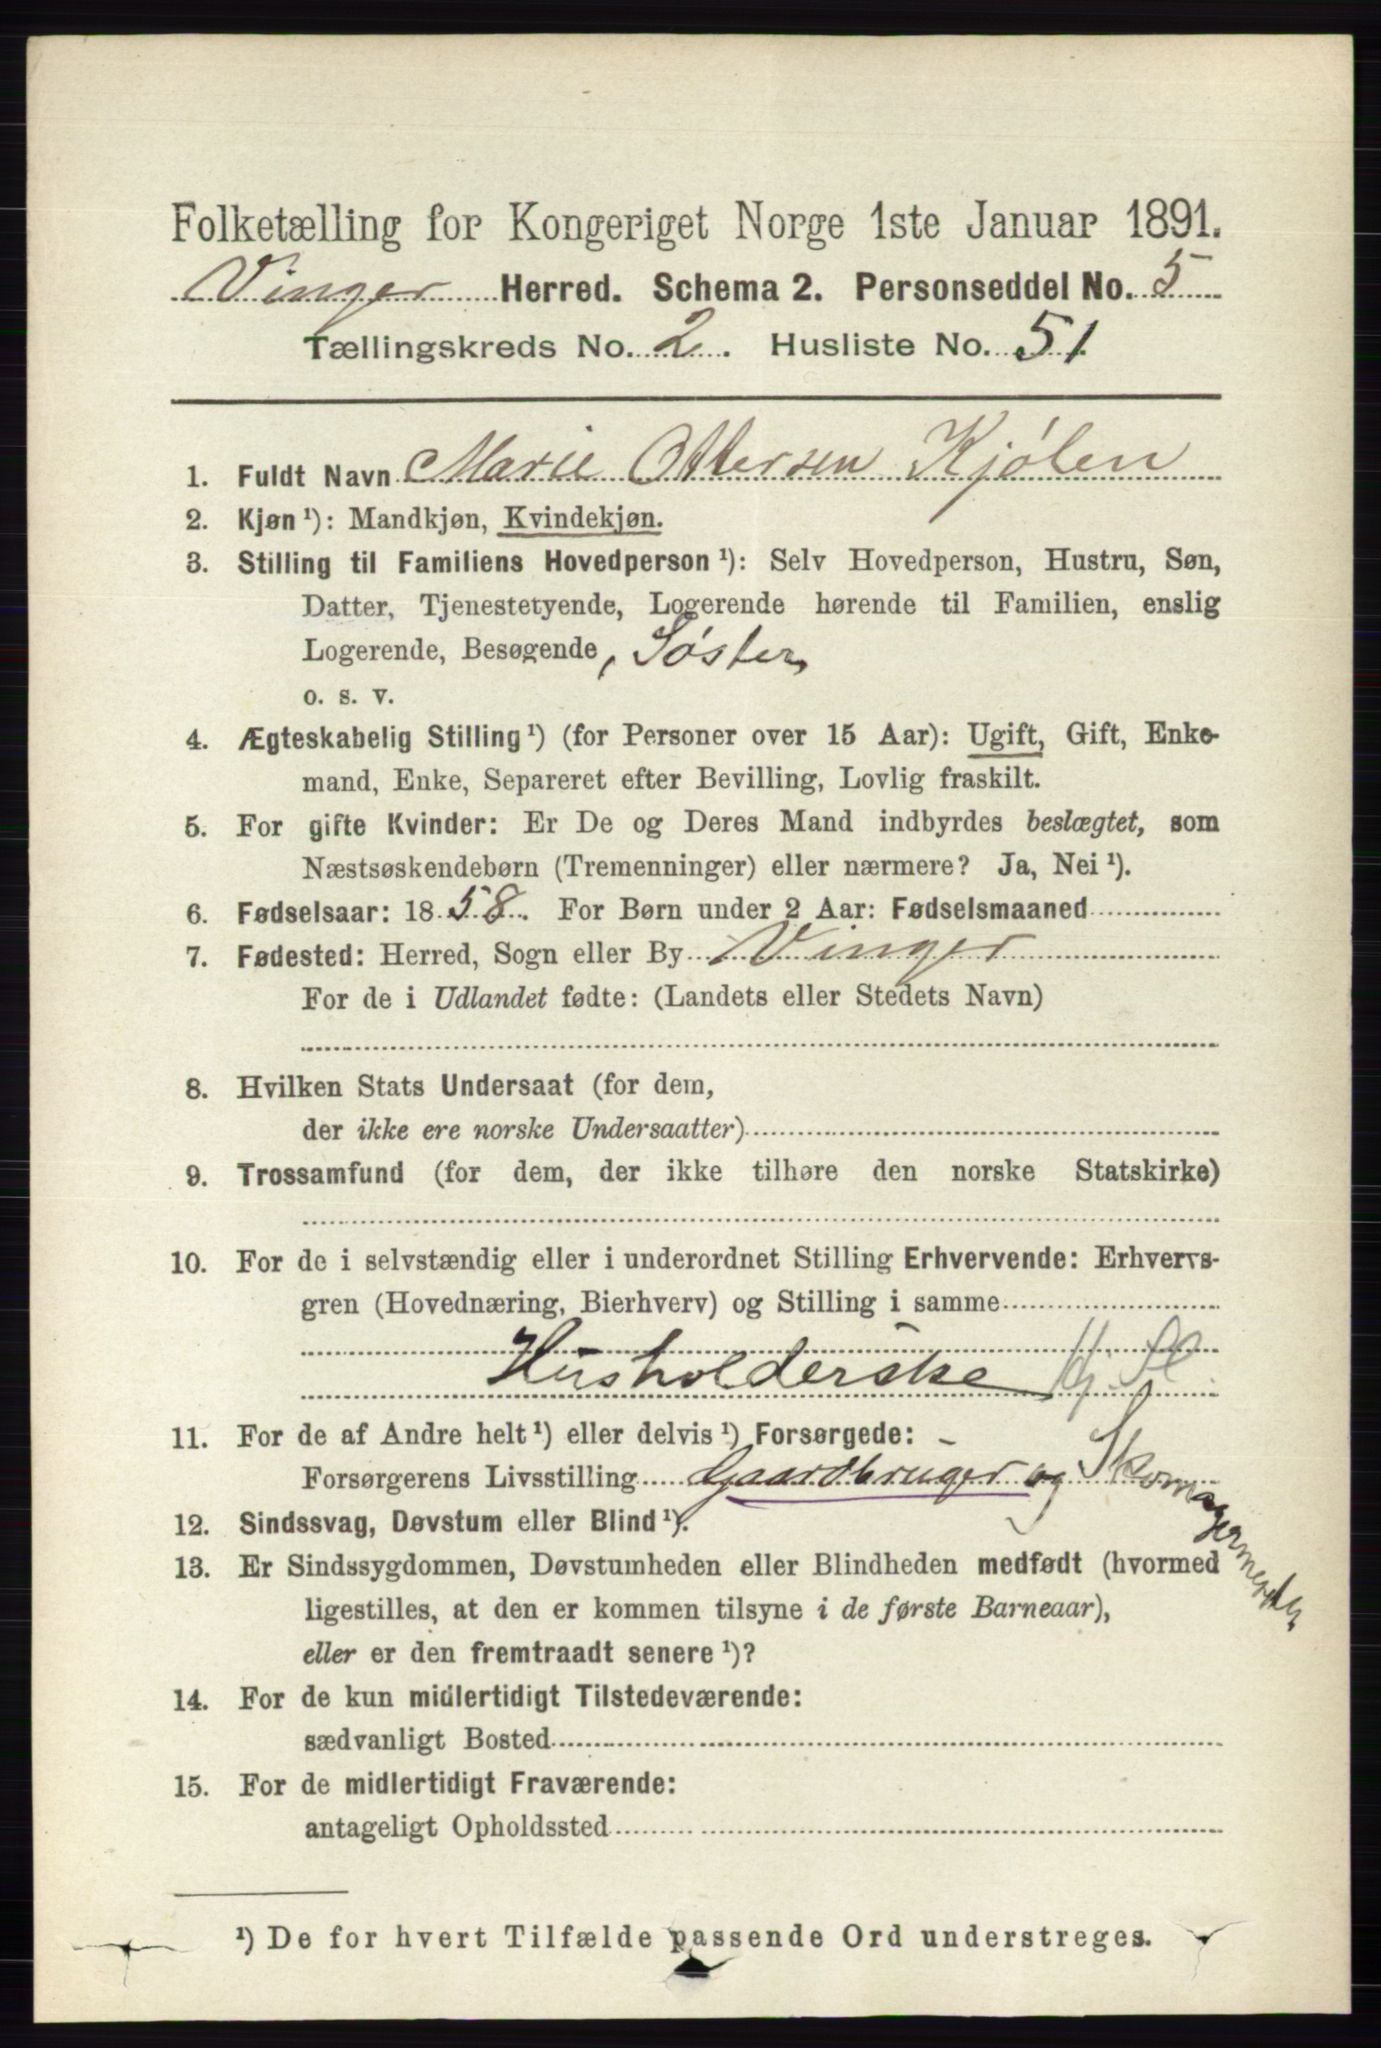 Folketælling for Kongeriget Norge 1ste Januar 1891.
Vinger Herred. Schema 2. Personseddel No. 5
Tællingskreds No. 2. Husliste No. 51
1. Fuldt Navn Marie Ottersen Kjølen
2. Kjøn ¹): Mandkjøn, Kvindekjøn.
3. Stilling til Familiens Hovedperson ¹): Selv Hovedperson, Hustru, Søn,
Datter, Tjenestetyende, Logerende hørende til Familien, enslig
Logerende, Besøgende, Søster,
o. s. v.
4. Ægteskabelig Stilling ¹) (for Personer over 15 Aar): Ugift, Gift, Enke-
mand, Enke, Separeret efter Bevilling, Lovlig fraskilt.
5. For gifte Kvinder: Er De og Deres Mand indbyrdes beslægtet, som
Næstsøskendebørn (Tremenninger) eller nærmere? Ja, Nei ¹).
6. Fødselsaar: 1858. For Børn under 2 Aar: Fødselsmaaned
7. Fødested: Herred, Sogn eller By Vinger
For de i Udlandet fødte: (Landets eller Stedets Navn)
8. Hvilken Stats Undersaat (for dem,
der ikke ere norske Undersaatter)
9. Trossamfund (for dem, der ikke tilhøre den norske Statskirke)
10. For de i selvstændig eller i underordnet Stilling Erhvervende: Erhvervs-
gren (Hovednæring, Bierhverv) og Stilling i samme
Husholderske
11. For de af Andre helt ¹) eller delvis ¹) Forsørgede:
Forsørgerens Livsstilling Gaardbruger og Skomagermester
12. Sindssvag, Døvstum eller Blind ¹).
13. Er Sindssygdommen, Døvstumheden eller Blindheden medfødt (hvormed
ligestilles, at den er kommen tilsyne i de første Barneaar),
eller er den fremtraadt senere ¹)?
14. For de kun midlertidigt Tilstedeværende:
sædvanligt Bosted
15. For de midlertidigt Fraværende:
antageligt Opholdssted
¹) De for hvert Tilfælde passende Ord understreges.